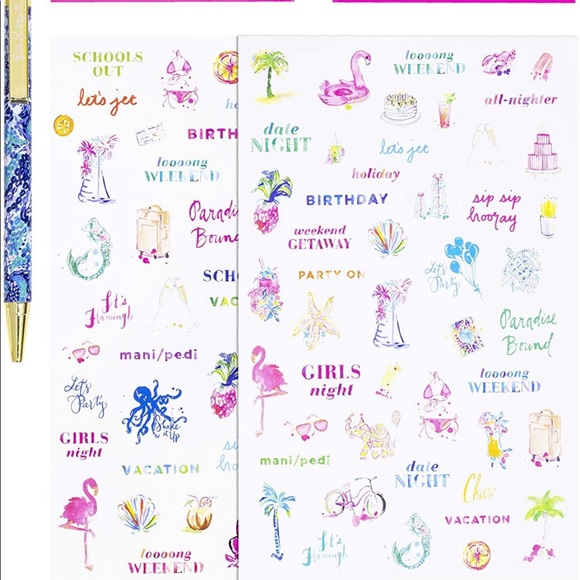 SCHOOLS
OUT
let's jet
BIRTH
loooong
WEEKEND
Paradise
Bound
SCH
It's
Flamingle
VAC
mani/pedi
Let's
Party
Shake
it Up
GIRLS
night
VACATION
loooong
WEEKEND
loooong
WEEKEND
all-nighter
date
NIGHT
let's jet
holiday
BIRTHDAY
sip sip
hooray
weekend
GETAWAY
PARTY ON
Let's
Party
Paradise
Bound
GIRLS
night
loooong
WEEKEND
mani/pedi
date
NIGHT
Cheers
VACATION
It's
Flamingle